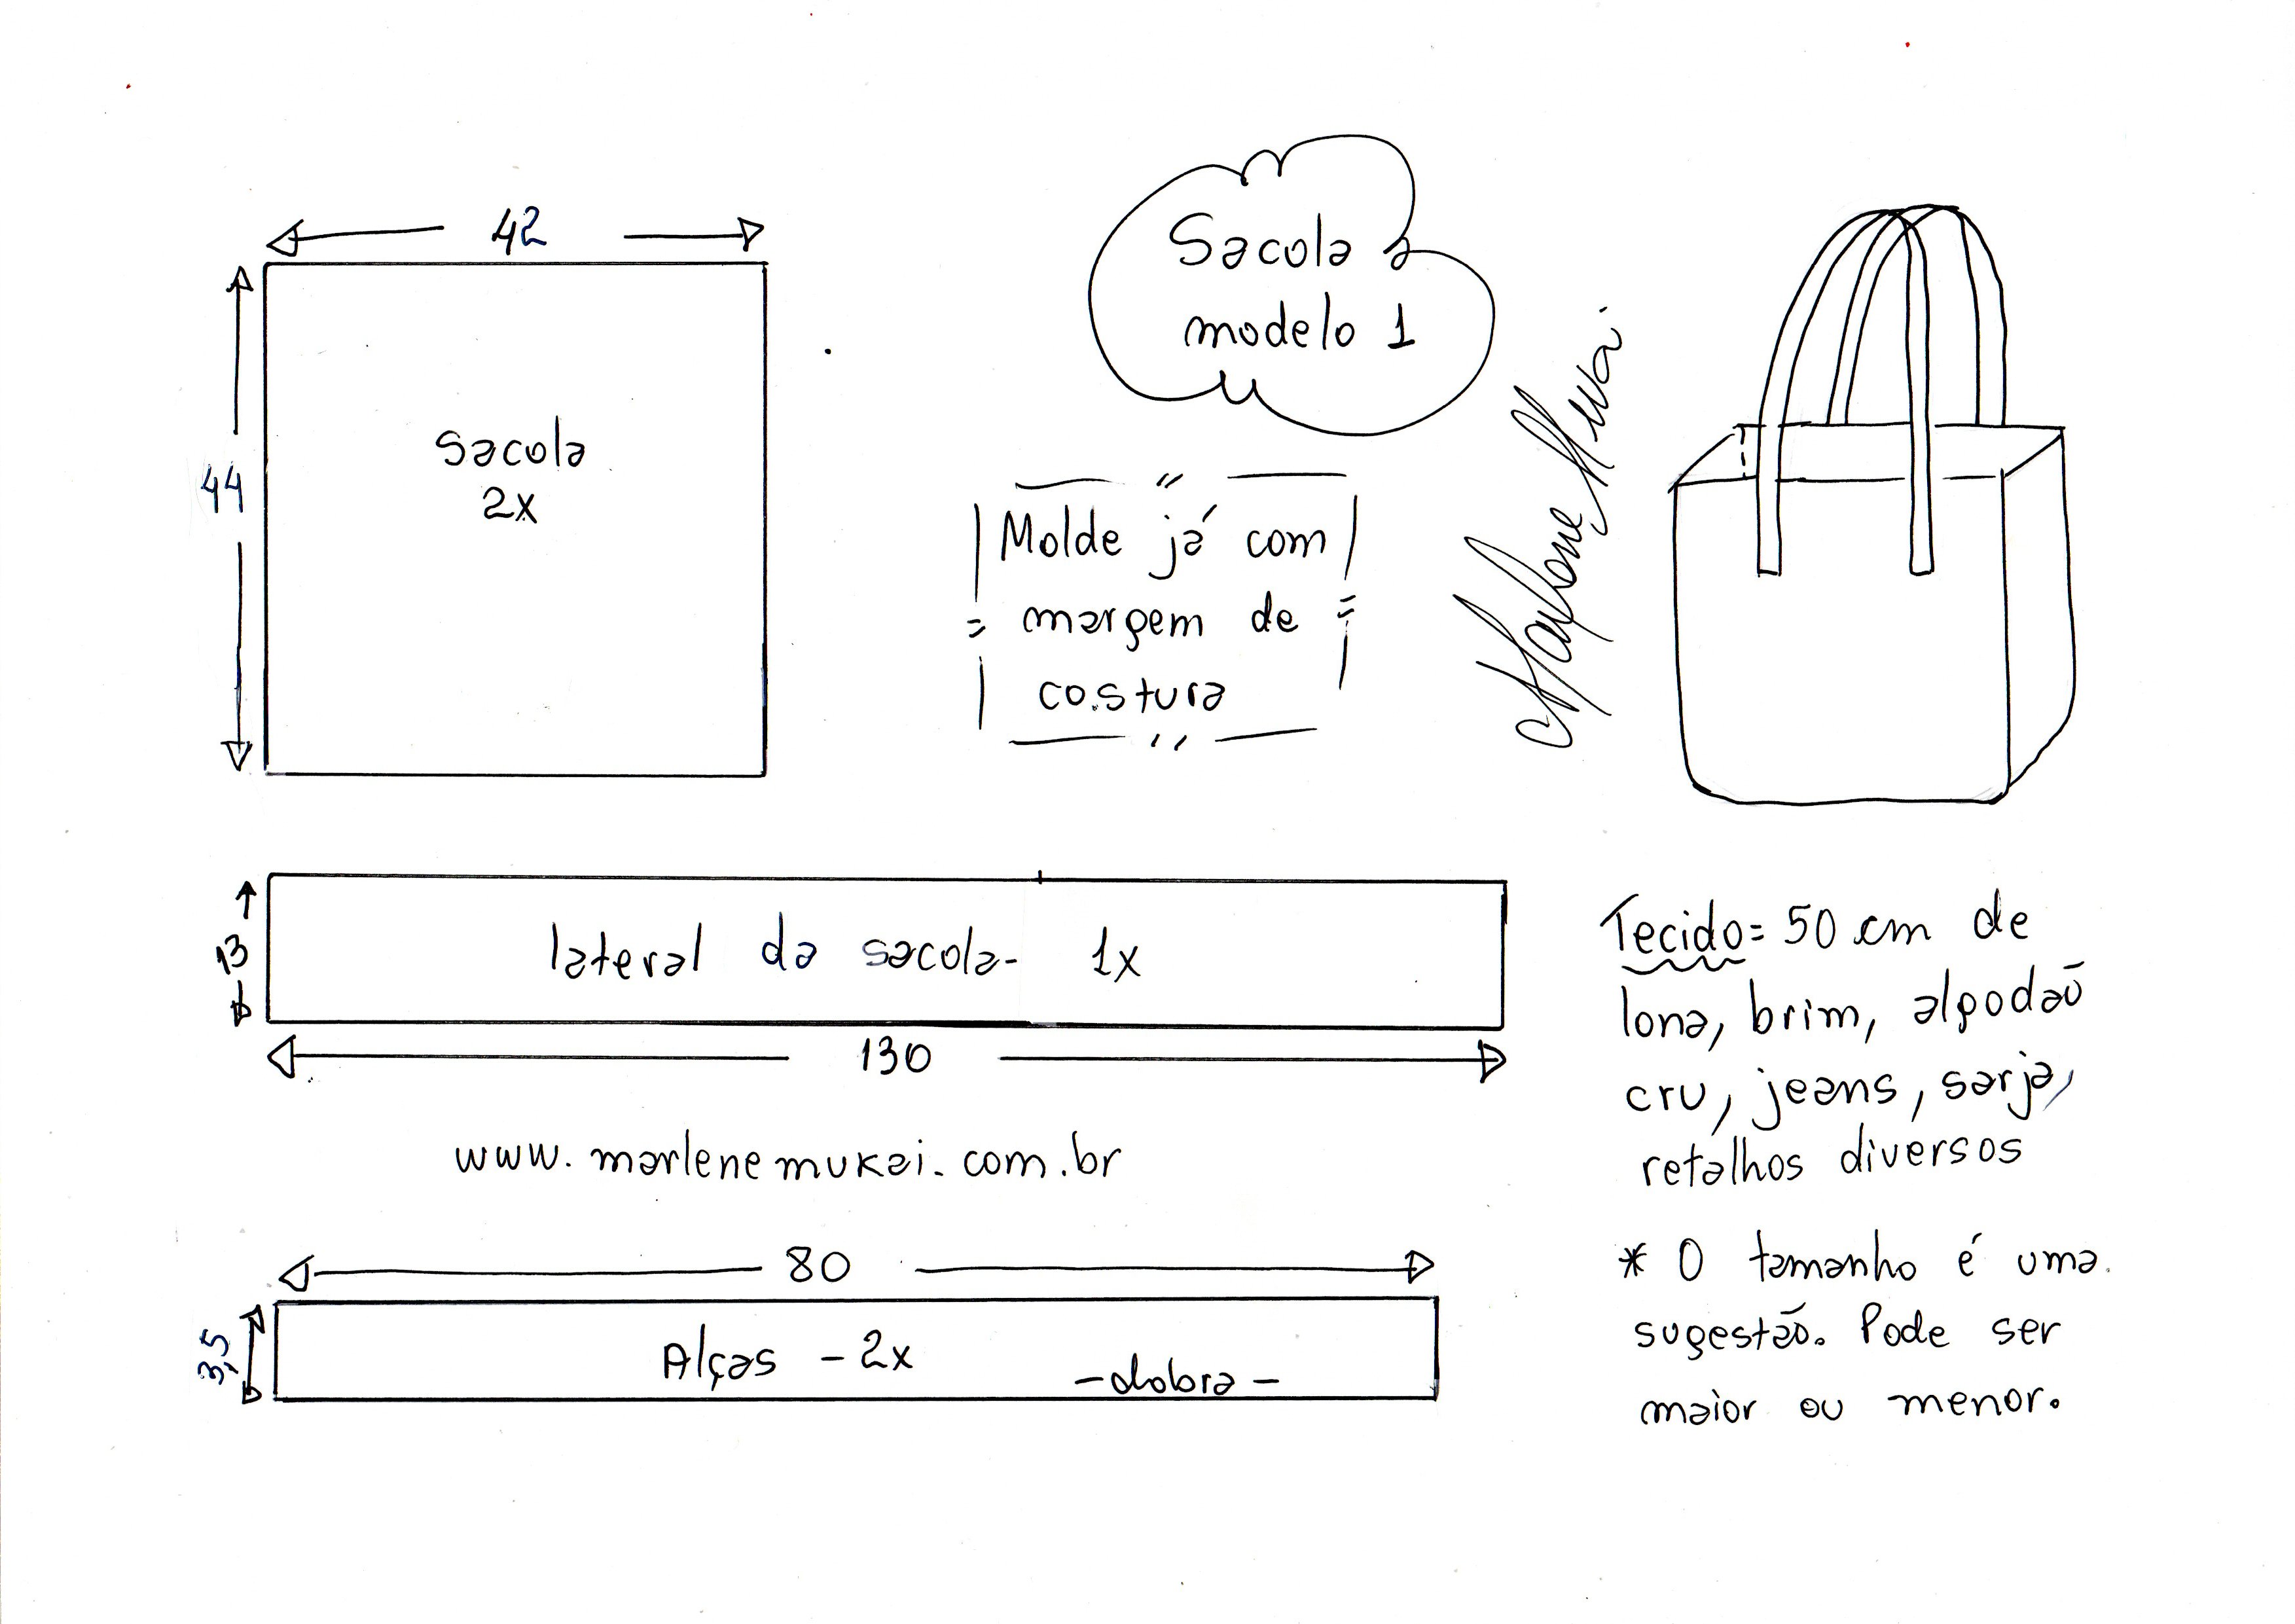 42
44
sacola
2x
Sacola
modelo 1
Molde já com
margem de
costura
Marlene Mukai
13
lateral da sacola- 1x
130
www.marlenemukai.com.br
80
3,5
Alças - 2x
- dobra -
Tecido= 50 cm de
lona, brim, algodão
cru, jeans, sarja,
retalhos diversos
* O tamanho é uma
sugestão. Pode ser
maior ou menor.